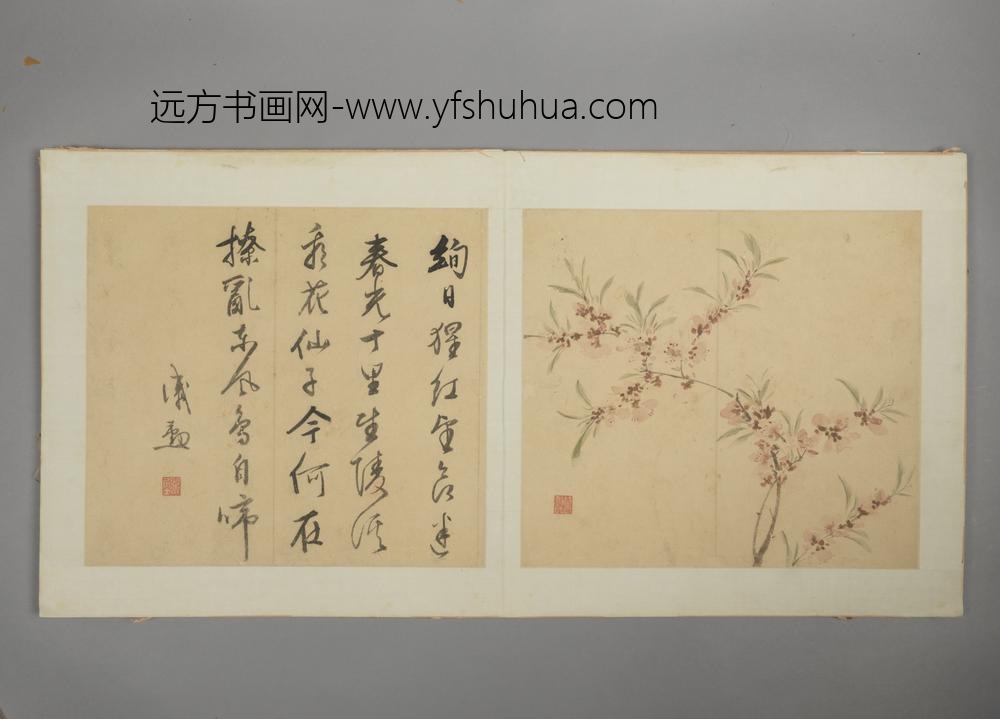 远方书画网-www.yfshuhua.com
絢日猩红望欲迷
春光十里武陵溪
看花仙子今何在
撩亂东风鳥自啼